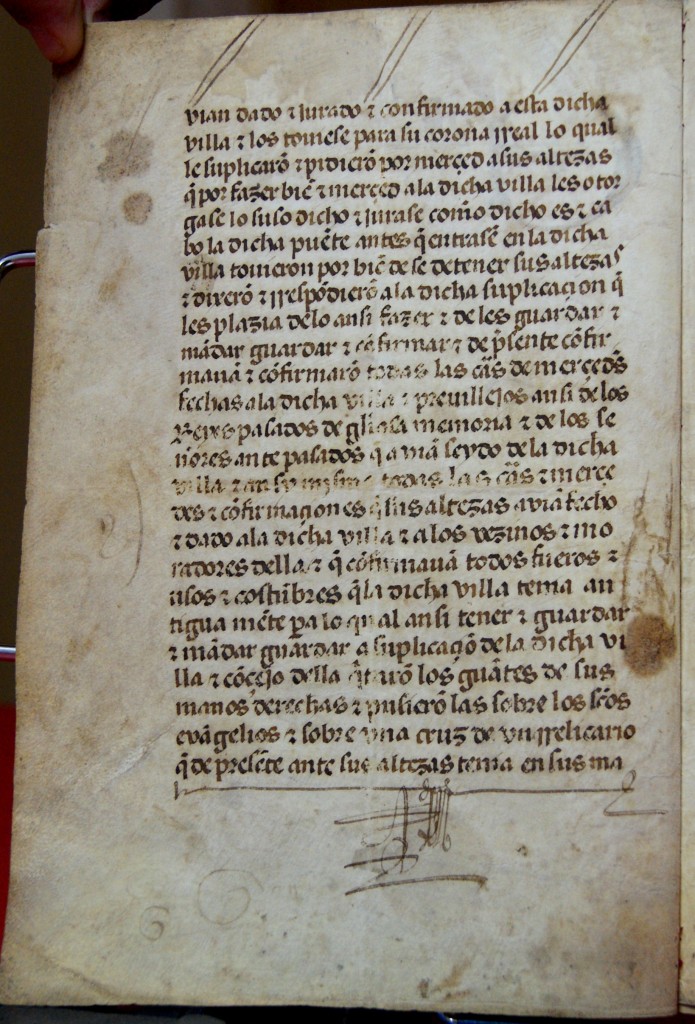 vian dado ⁊ jurado ⁊ confirmado a esta dicha
villa ⁊ los toviese para su corona rreal lo qual
le suplicarō ⁊ pidierō por merçed a sus altezas
q̄ por fazer biē ⁊ merçed ala dicha villa les otor
gase lo suso dicho ⁊ jurase com̄o dicho es ⁊ ca
bo la dicha puēte antes q̄ entrasē en la dicha
villa tovieron por biē de se detener sus altezas
⁊ dixerō ⁊ rrespōdierō ala dicha suplicaçion q̄
les plazia delo ansi fazer ⁊ de les guardar ⁊
mādar guardar ⁊ cōfirmar ⁊ de p̄sente cōfir
mavā ⁊ cōfirmarō todas las cās de merçedes
fechas ala dicha villa ⁊ previllejos ansi de los
Reyes pasados de gl̄iosa memoria ⁊ de los se
ñores ante pasados q̄ avıā seydo de la dicha
villa ⁊ an si mysmo todas las cās ⁊ merçe
des ⁊ cōfirmaçiones q̄ sus altezas aviā fecho
⁊ dado ala dicha villa ⁊ a los vezinos ⁊ mo
radores della ⁊ q̄ cōfirmavā todos fueros ⁊
usos ⁊ costūbres q̄ la dicha villa tenia an
tigua mēte pa lo qual ansi tener ⁊ guardar
⁊ mādar guardar a suplicaçiō de la dicha vi
lla ⁊ cōçejo della q̄tarō los guātes de sus
manos derechas ⁊ pusierō las sobre los sc̄os
evāgelios ⁊ sobre vna cruz de vn rrelicario
q̄ de presēte ante sus altezas tenia en sus ma